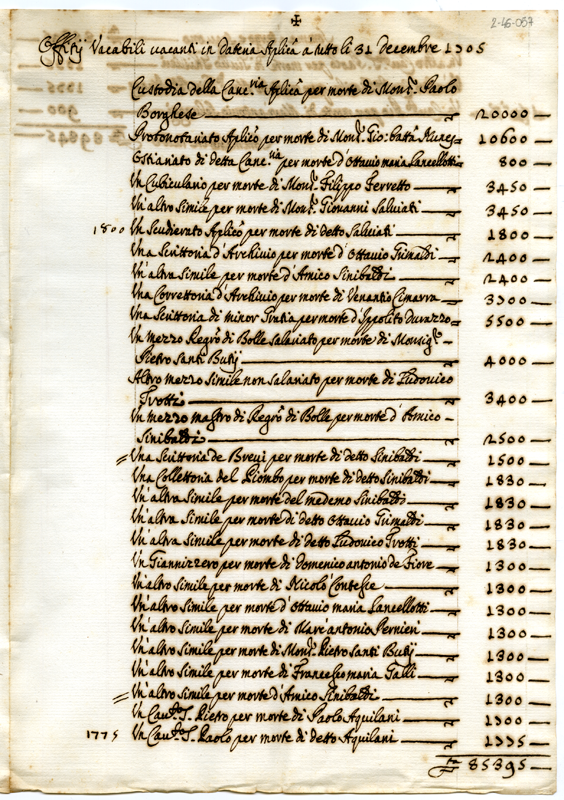 ✠
2-46-057
Offitij Vacabili vacanti in Dataria Aplicã à tutto li 31 Decembre 1705
Custodia della Canc.ria Aplicã per morte di Mons.r Paolo
Borghese — 20000 —
Protonotariato Aplicõ per morte di Mons.r Gio: batta — 10600 —
Ostiariato di detta Canc.ria per morte d'Ottavio maria Lancellotti — 800 —
Un Cubiculario per morte di Mons.r Filippo Ferretto — 3450 —
Un'altro simile per morte di Mons.r Giovanni Salviati — 3450 —
1800 Un Scudierato Aplicõ per morte di detto Salviati — 1800 —
Una Scrittoria d'Archivio per morte d'Ottavio Grimaldi — 2400 —
Un'altra Simile per morte d'Amico Sinibaldi — 2400 —
Una Correttoria d'Archivio per morte di Venantio Cimarra — 3300 —
Una Scrittoria di minor Gratia per morte d'Ippolito Durazzo — 5500 —
Un mezzo Regrõ di Bolle salariato per morte di Monsig.r
Pietro Santi Butij — 4000 —
Altro mezzo Simile non salariato per morte di Ludovico
Trotti — 3400 —
Un mezzo mastro di Regrõ di Bolle per morte d'Amico
Sinibaldi — 2500 —
Una Scrittoria de Brevi per morte di detto Sinibaldi — 1500 —
Una Collettoria del Piombo per morte di detto Sinibaldi — 1830 —
Un'altra Simile per morte del medemo Sinibaldi — 1830 —
Un'altra Simile per morte di detto Ottavio Grimaldi — 1830 —
Un'altra Simile per morte di detto Ludovico Trotti — 1830 —
Un Giannizzero per morte di Domenico antonio de Fiore — 1300 —
Un'altro Simile per morte di Nicolò Contesce — 1300 —
Un'altro Simile per morte d'Ottavio maria Lancellotti — 1300 —
Un'altro Simile per morte di Marc'antonio Pernieri — 1300 —
Un'altro Simile per morte di Mons.r Pietro Santi Butij — 1300 —
Un'altro Simile per morte di Francesco maria Galli — 1300 —
Un'altro Simile per morte d'Amico Sinibaldi — 1300 —
Un Cau.to S. Pietro per morte di Paolo Aquilani — 1300 —
1775 Un Cau.to S. Paolo per morte di detto Aquilani — 1775 —
85395 —